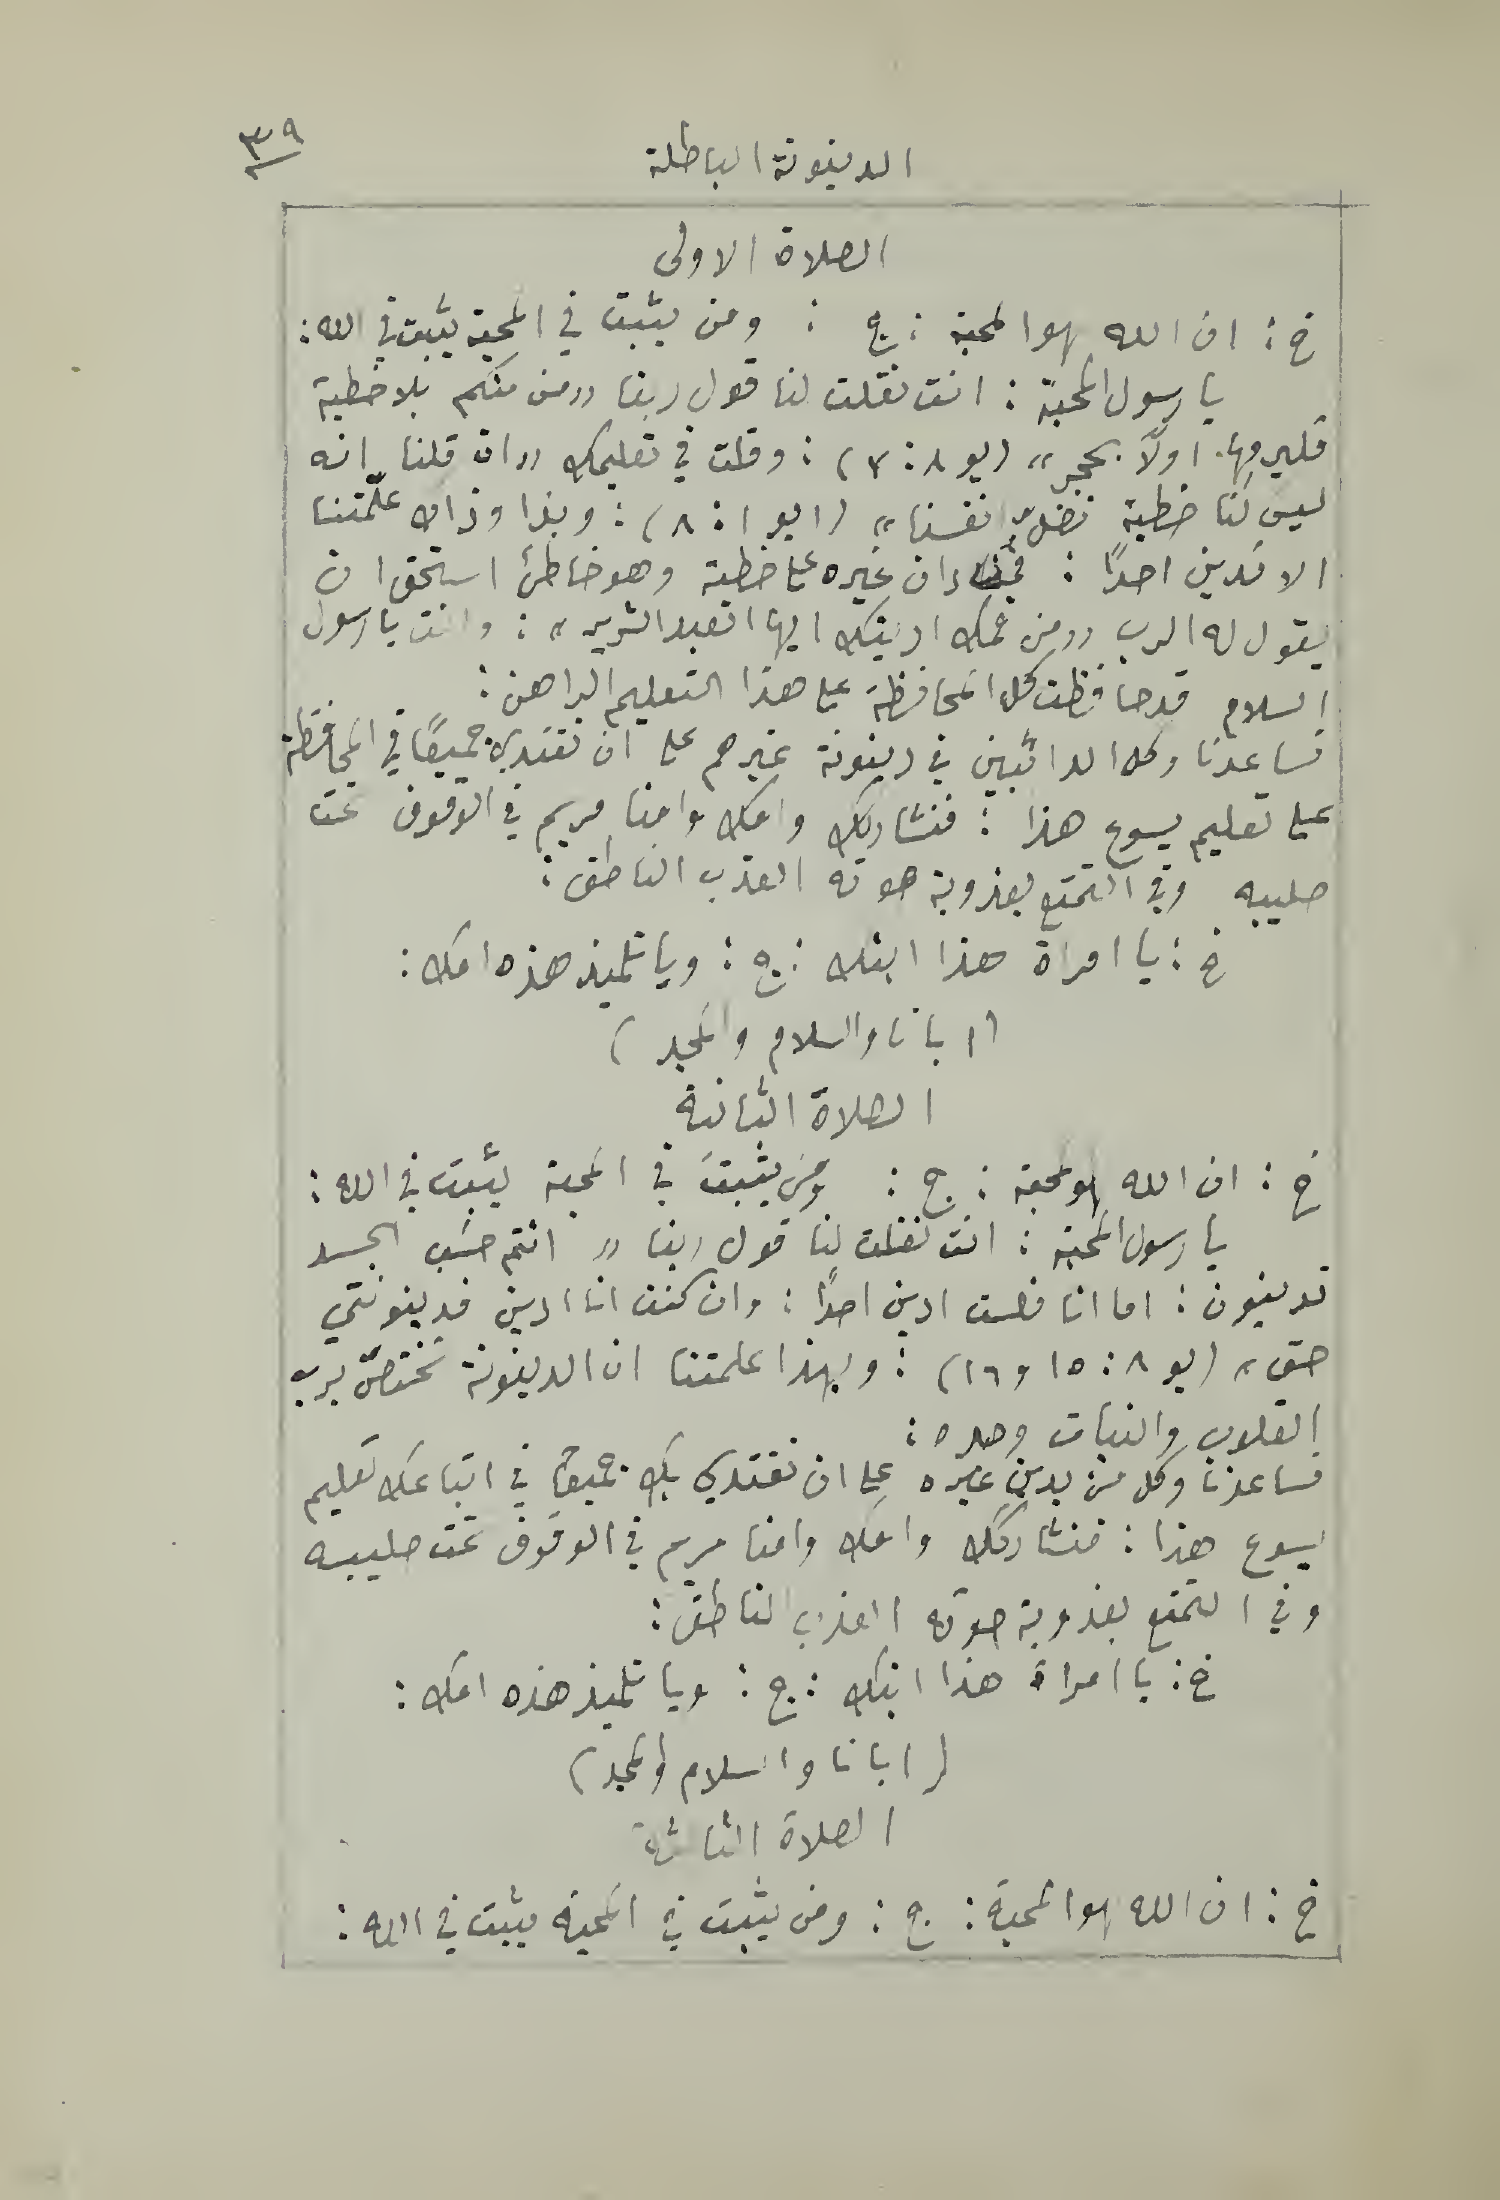 ٣٩
الدينونة الباطلة
الصلاة الاولى
خ : ان الله هو المحبة : ج : ومن يثبت في المحبة يثبت في الله :
يا رسول المحبة : انت نقلت لنا قول ربنا „ من منكم بلا خطية
فليرمها اولًا بحجر „ (يو ٨ : ٧) : وقلت في تعليمك „ ان قلنا انه
ليس لنا خطية نضل انفسنا „ (١يو ١ : ٨) : وبذا وذاك علّمتنا
الا ندين احدًا : فمن دان غيره على خطية وهو خاطئ استحق ان
يقول له الرب „ من فمك ادينك ايها العبد الشرير „ : وانت يا رسول
السلام قد حافظت كل المحافظة على هذا التعليم الراهن :
فساعدنا وكل الدائبين في دينونة غيرهم على ان نقتدي جميعًا في المحافظة
على تعليم يسوع هذا : فنشاركك وامك وامنا مريم في الوقوف تحت
صليبه وفي التمتع بعذوبة صوته العذب الناطق :
خ : يا امراة هذا ابنك : ج : ويا تلميذ هذه امك :
(ابانا والسلام والمجد)
الصلاة الثانية
خ : ان الله هو المحبة : ج : ومن يثبت في المحبة يثبت في الله :
يا رسول المحبة : انت نقلت لنا قول ربنا „ انتم حسب الجسد
تدينون : اما انا فلست ادين احدًا : وان كنت انا ادين فدينونتي
حق „ (يو ٨ : ١٥ و ١٦) : وبهذا علمتنا ان الدينونة تختصّ برب
القلوب والنيات وحده :
فساعدنا وكل من يدين غيره على ان نقتدي بك جميعًا في اتباعك تعليم
يسوع هذا : فنشاركك وامك وامنا مريم في الوقوف تحت صليبه
وفي التمتع بعذوبة صوته العذب الناطق :
خ : يا امراة هذا ابنك : ج : ويا تلميذ هذه امك :
(ابانا والسلام والمجد)
الصلاة الثالثة
خ : ان الله هو المحبة : ج : ومن يثبت في المحبة يثبت في الله :